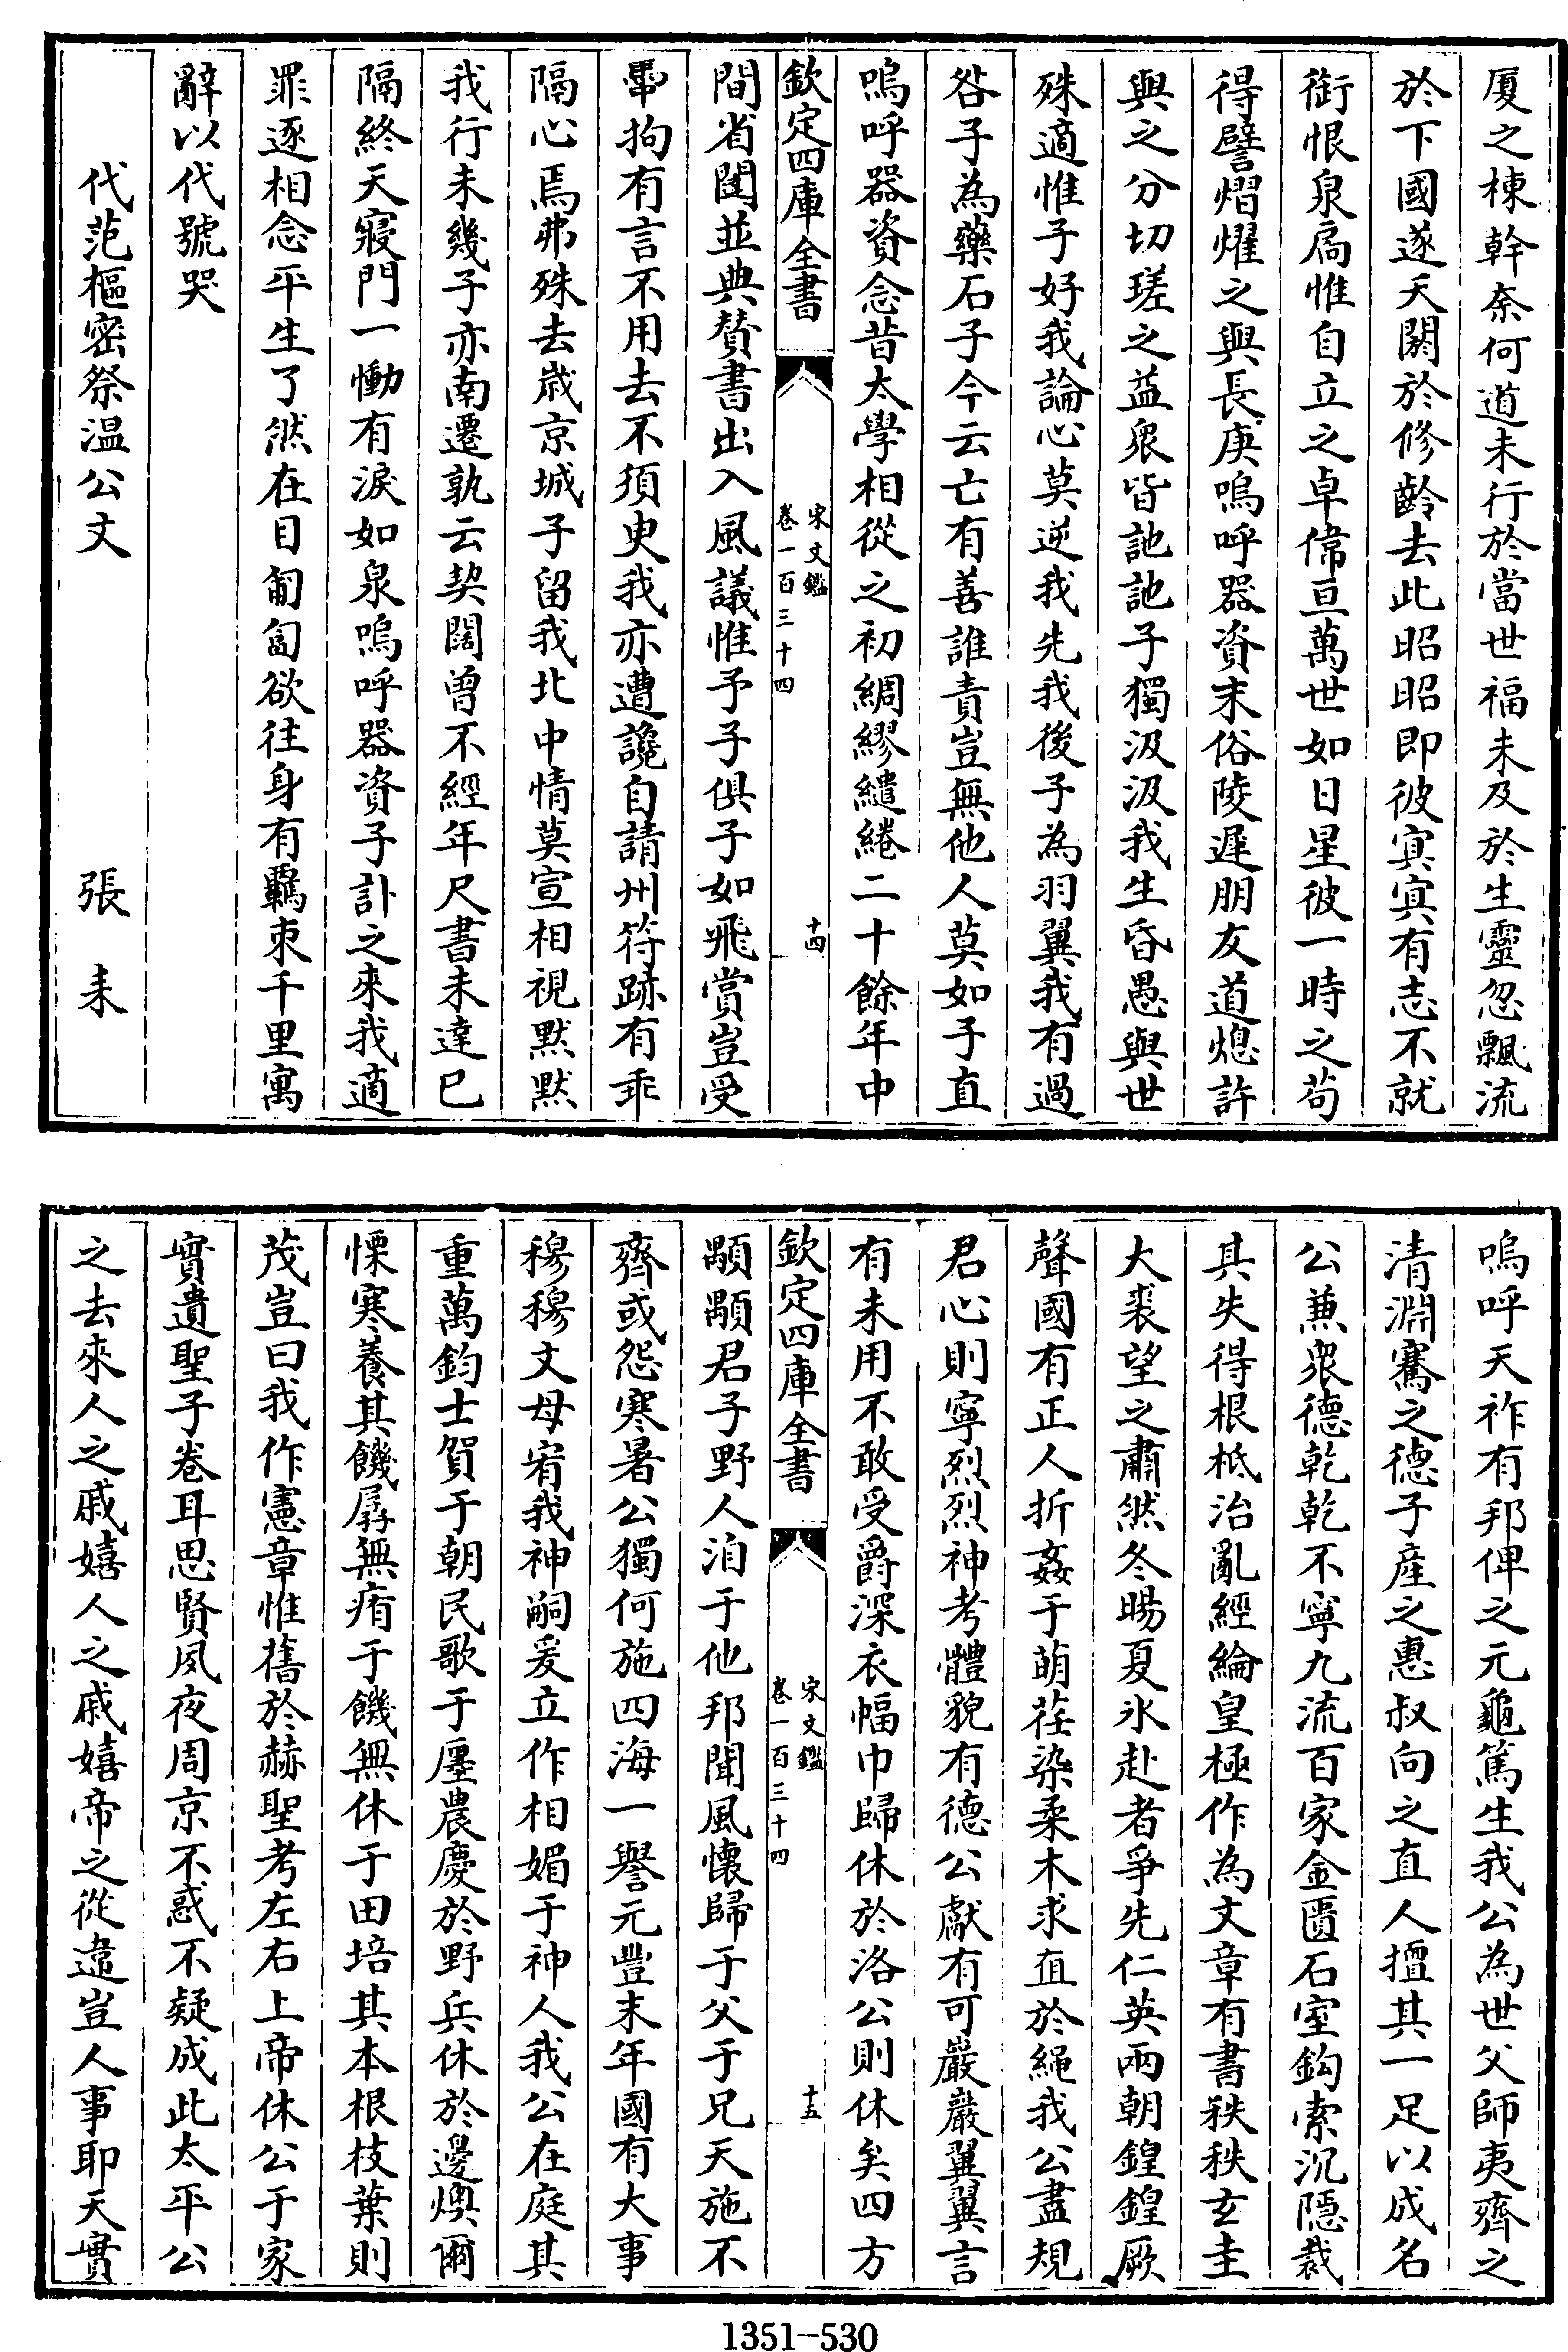 厦之棟幹奈何道未行於當世福未及於生靈忽飄流
於下國遂夭閼於修齡去此昭昭即彼㝠㝠有志不就
銜恨泉扃惟自立之卓偉亘萬世如日星彼一時之茍
得譬熠燿之與長庚嗚呼器資末俗陵遲朋友道熄許
與之分切瑳之益衆皆訑訑子獨汲汲我生昏愚與世
殊適惟子好我論心莫逆我先我後子為羽翼我有過
咎子為藥石子今云亡有善誰責豈無他人莫如子直
嗚呼器資念昔太學相從之初綢繆繾綣二十餘年中
欽定四庫全書
宋文鑑
卷一百三十四
十四
間省闥並典賛書出入風議惟予子俱子如飛賞豈受
馽拘有言不用去不須臾我亦遭讒自請州符跡有乖
隔心焉弗殊去歳京城子留我北中情莫宣相視黙黙
我行未幾子亦南遷孰云契闊曾不經年尺書未達已
隔終天寢門一慟有淚如泉嗚呼器資子訃之來我適
罪逐相念平生了然在目匍匐欲往身有羈束千里寓
辭以代號哭
代范樞密祭温公文
張耒
嗚呼天祚有邦俾之元龜篤生我公為世父師夷齊之
清淵騫之德子產之惠叔向之直人擅其一足以成名
公兼衆德乾乾不寧九流百家金匱石室鈎索沉隱裁
其失得根柢治亂經綸皇極作為文章有書秩秩玄圭
大裘望之肅然冬暘夏氷赴者爭先仁英兩朝鍠鍠厥
聲國有正人折姦于萌荏染柔木求直於繩我公盡規
君心則寧烈烈神考體貌有德公獻有可嚴嚴翼翼言
有未用不敢受爵深衣幅巾歸休於洛公則休矣四方
欽定四庫全書
宋文鑑
卷一百三十四
十五
顒顒君子野人洎于他邦聞風懷歸于父于兄天施不
齊或怨寒暑公獨何施四海一譽元豐末年國有大事
穆穆文母宥我神嗣爰立作相媚于神人我公在庭其
重萬鈞士賀于朝民歌于廛農慶於野兵休於邊燠爾
慄寒養其饑孱無痏于饑無休于田培其本根枝葉則
茂豈曰我作憲章惟舊於赫聖考左右上帝休公于家
實遺聖子卷耳思賢夙夜周京不惑不疑成此太平公
之去來人之戚嬉人之戚嬉帝之從違豈人事耶天實
1351-530